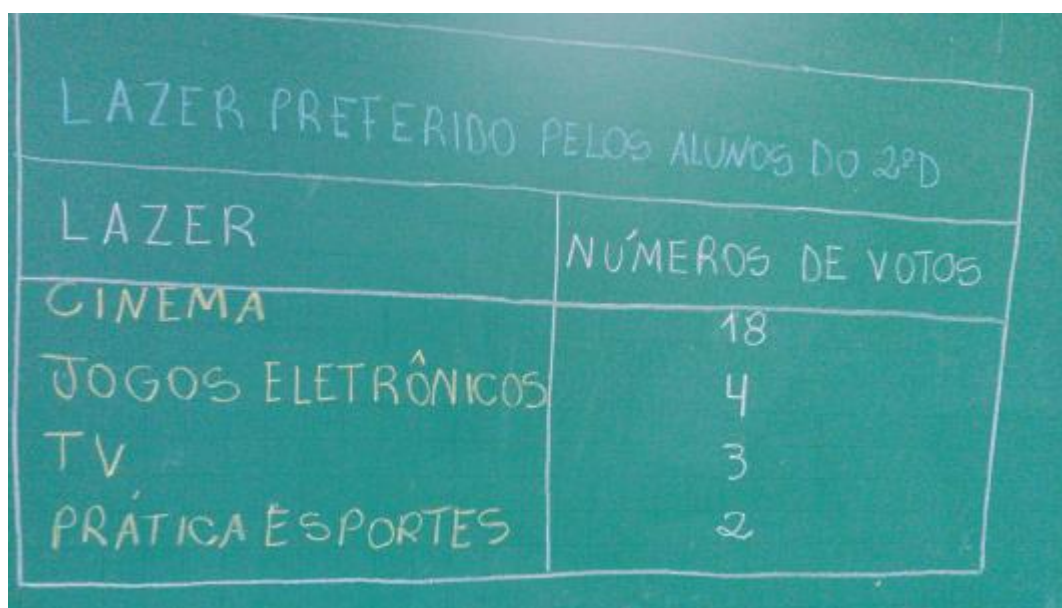 LAZER PREFERIDO PELOS ALUNOS DO 2ºD
LAZER NÚMEROS DE VOTOS
CINEMA 18
JOGOS ELETRÔNICOS 4
TV 3
PRÁTICA ESPORTES 2